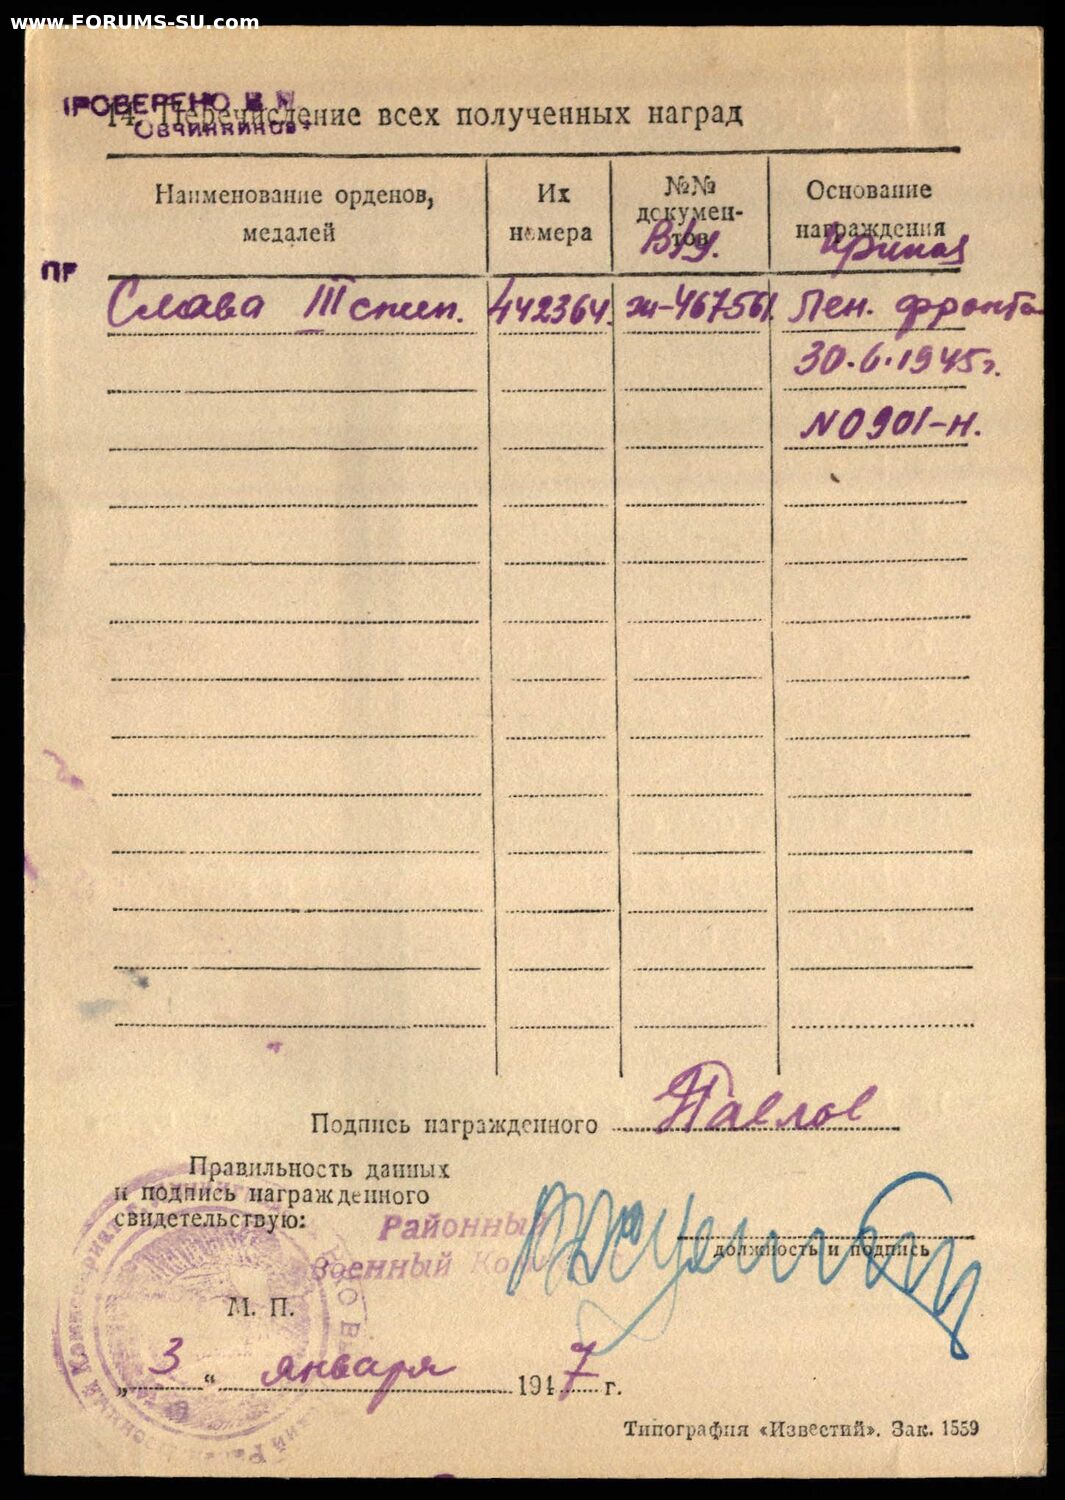 www.FORUMS-SU.com
ПРОВЕРЕНО
Овчинников
14. Перечисление всех полученных наград
Наименование орденов, медалей
Их номера
№№ документов
Основание награждения
ПР
В/у.
Приказ
Слава III степ. 442364. Ж-467561. Лен. фронта
30.6.1945г.
N0901-н.
Подпись награжденного Павлов
Правильность данных
и подпись награжденного
свидетельствую:
Районный
Военный
должность и подпись
М. П.
„ 3 “ января 1947 г.
Типография «Известий». Зак. 1559